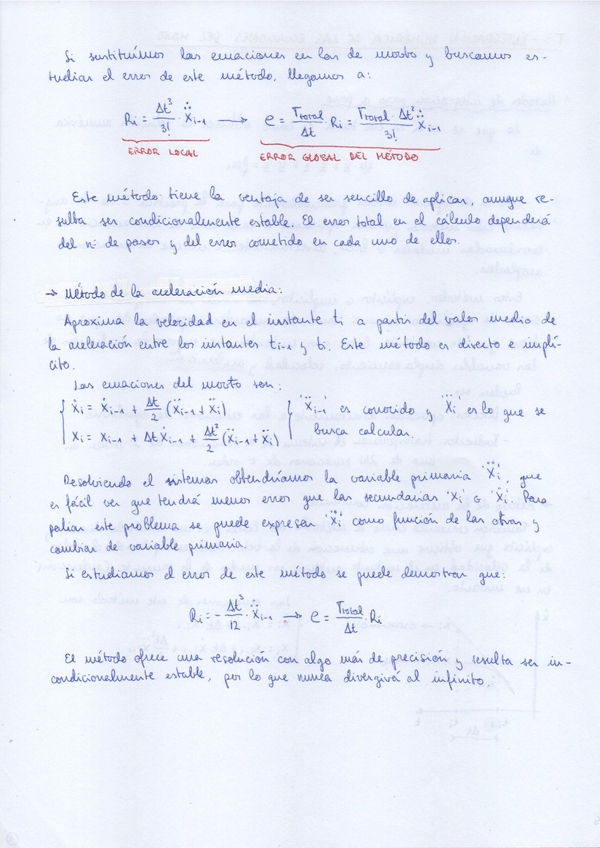 Si sustituímos las ecuaciones en las de movto y buscamos es-
tudiar el error de este método, llegamos a:
Ri = Δt³/3! · ẍi-1 → e = Ttotal/Δt · Ri = Ttotal · Δt²/3! · ẍi-1
ERROR LOCAL ERROR GLOBAL DEL MÉTODO
Este método tiene la ventaja de ser sencillo de aplicar, aunque re-
sulta ser condicionalmente estable. El error total en el cálculo dependerá
del nº de pasos y del error cometido en cada uno de ellos.
→ Método de la aceleración media:
Aproxima la velocidad en el instante ti a partir del valor medio de
la aceleración entre los instantes ti-1 y ti. Este método es directo e implí-
cito.
Las ecuaciones del movto son:
ẋi = ẋi-1 + Δt/2 (ẍi-1 + ẍi) { 'ẍi-1' es conocido y 'ẍi' es lo que se
xi = xi-1 + Δt ẋi-1 + Δt²/2 (ẍi-1 + ẍi) busca calcular.
Resolviendo el sistemas obtendríamos la variable primaria 'ẍi', que
es fácil ver que tendrá menos error que las secundarias 'xi' o 'ẋi'. Para
paliar este problema se puede expresar 'ẍi' como función de las otras y
cambiar de variable primaria.
Si estudiamos el error de este método se puede demostrar que:
Ri = - Δt³/12 · ẍi-1 → e = Ttotal/Δt · Ri
El método ofrece una resolución con algo más de precisión y resulta ser in-
condicionalmente estable, por lo que nunca divergirá al infinito.